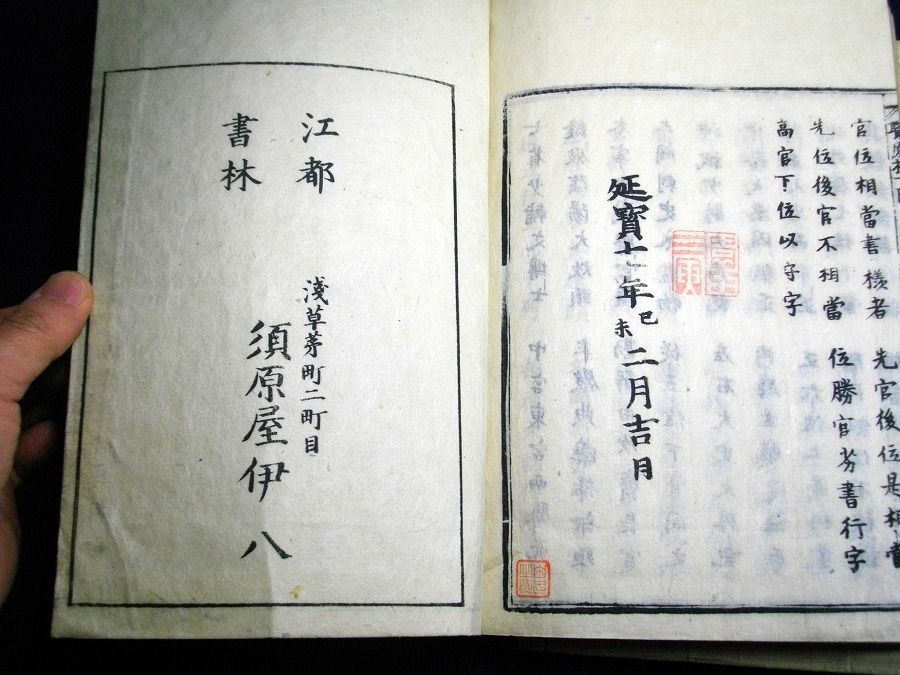 官位相當書樣者
先官後位是相當
先位後官不相當
位勝官劣書行字
高官下位以守字
延寶七年己未二月吉日
江都
書林
淺草茅町二町目
須原屋伊八